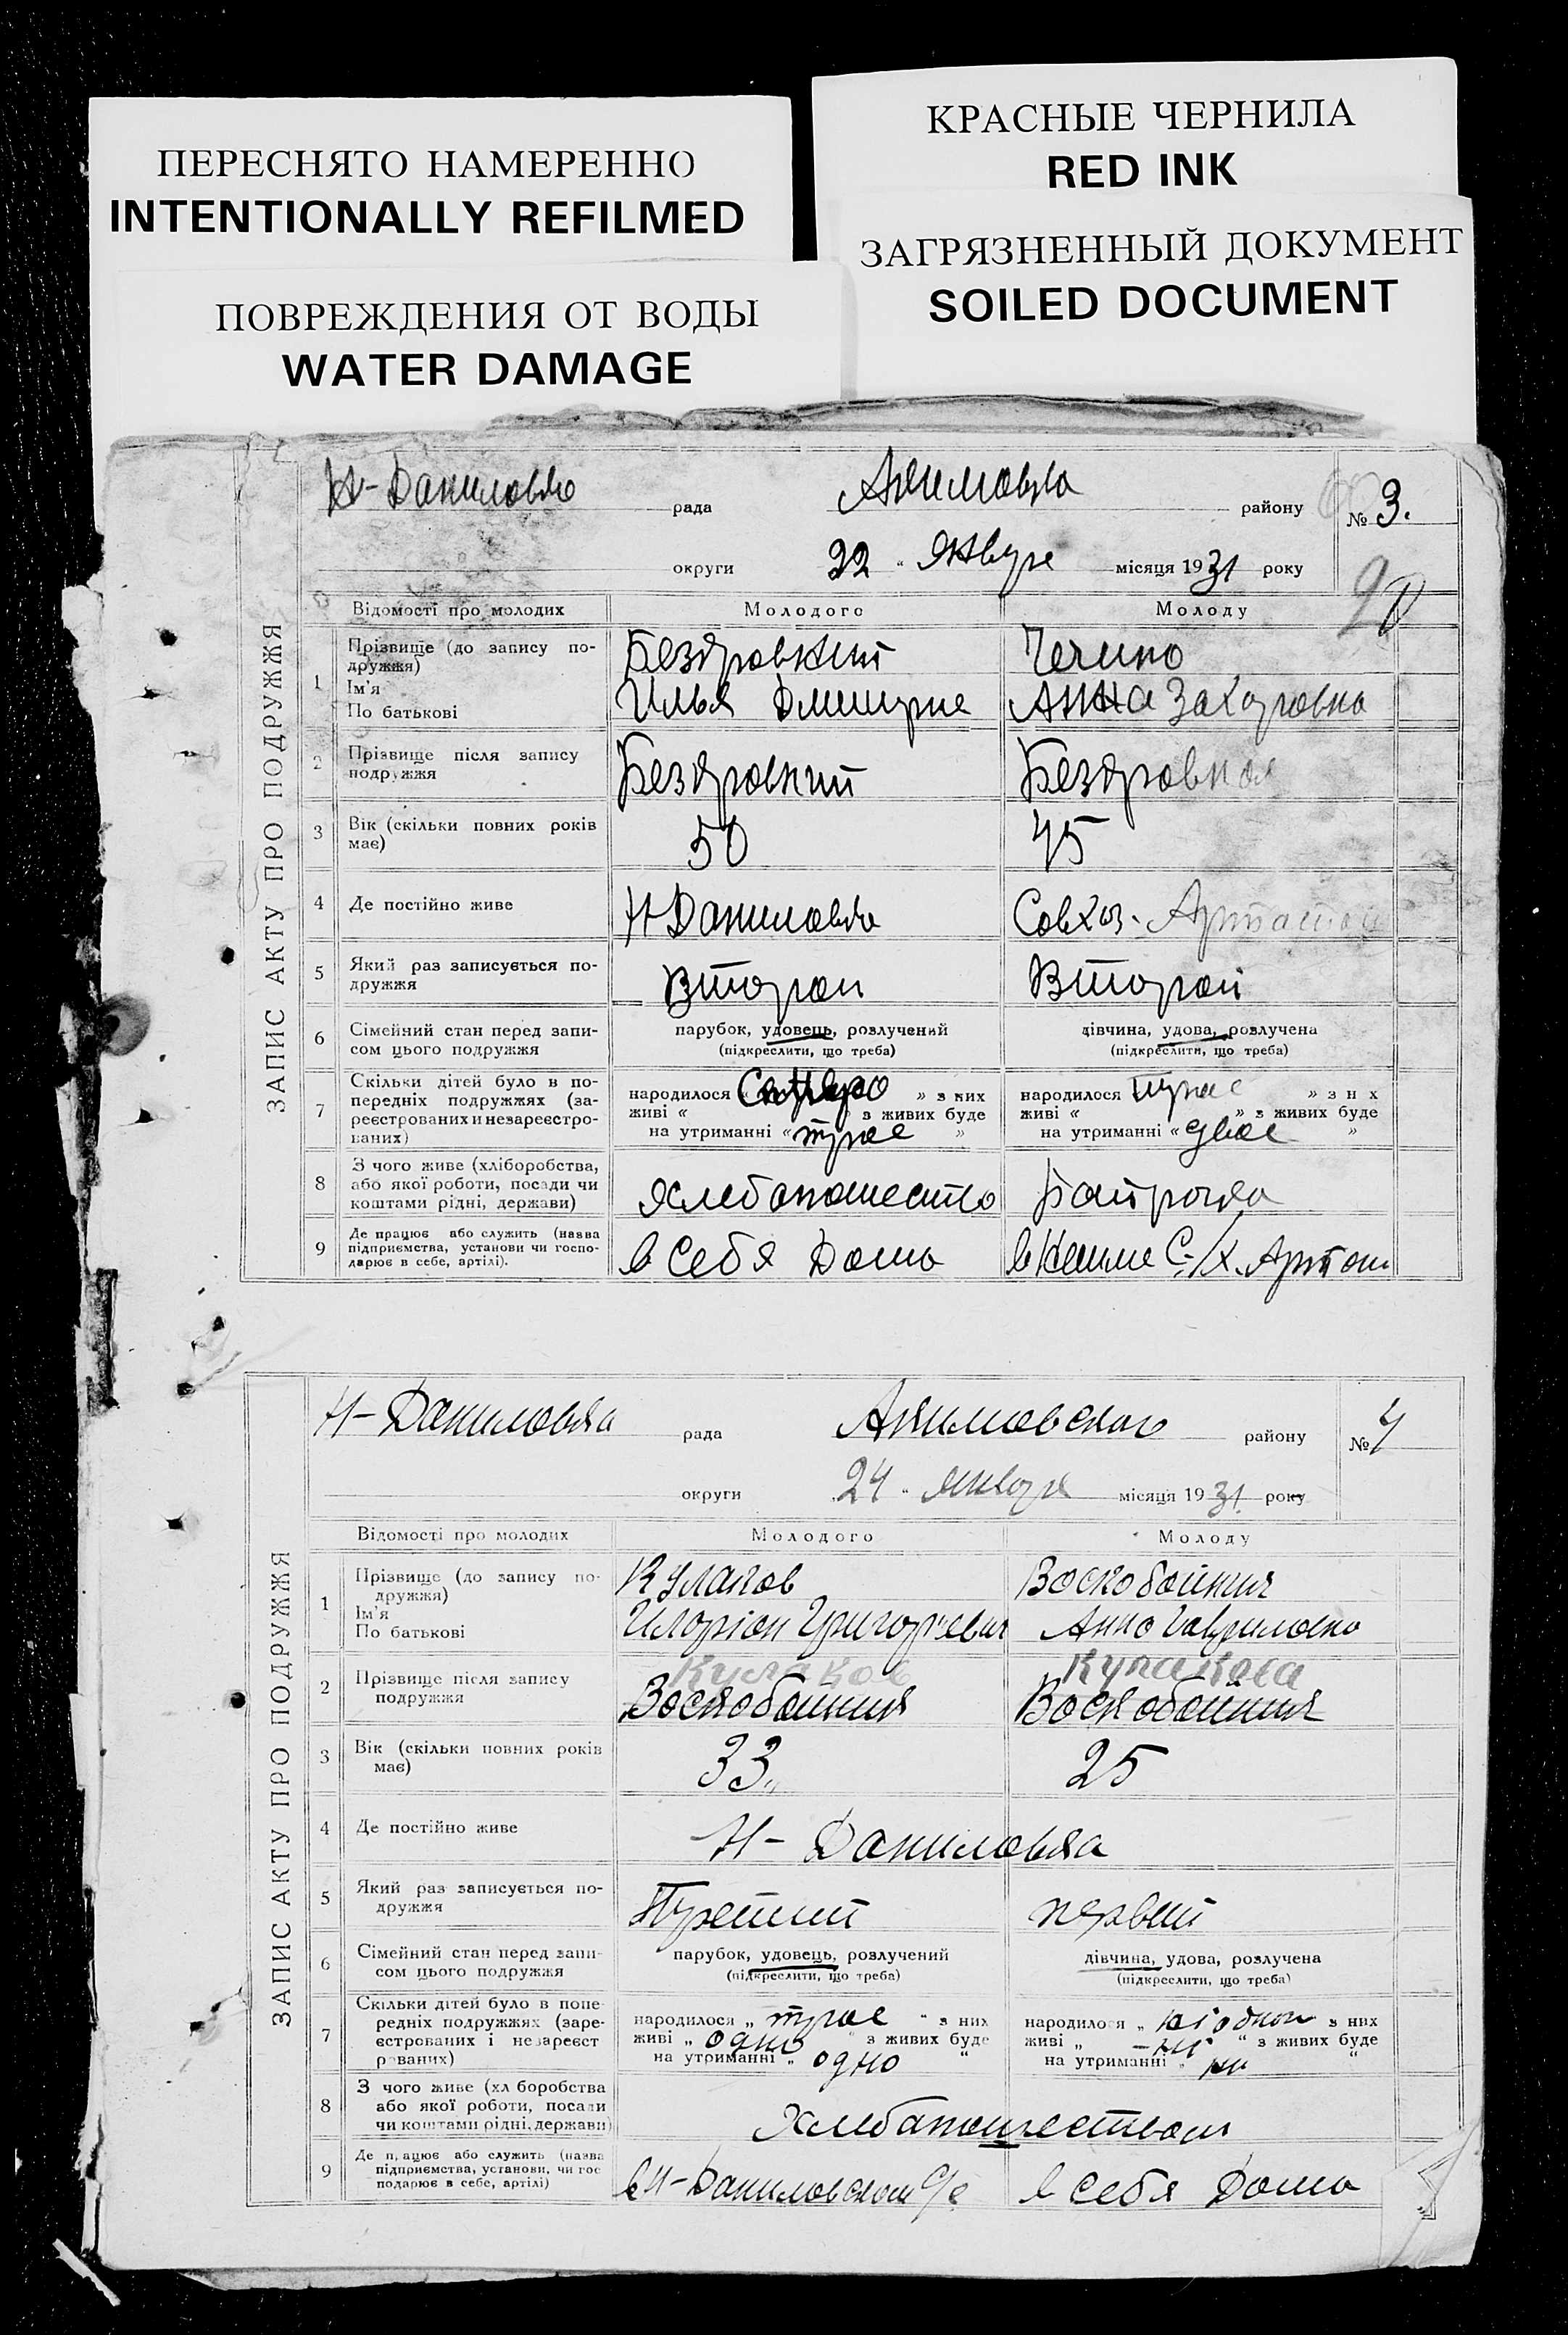 ПЕРЕСНЯТО НАМЕРЕННО
INTENTIONALLY REFILMED
КРАСНЫЕ ЧЕРНИЛА
RED INK
ЗАГРЯЗНЕННЫЙ ДОКУМЕНТ
SOILED DOCUMENT
ПОВРЕЖДЕНИЯ ОТ ВОДЫ
WATER DAMAGE
ЗАПИС АКТУ ПРО ПОДРУЖЖЯ
Н-Даниловка рада Акимовка району № 3.
округи 22 " января місяця 1931 року
Відомості про молодих Молодого Молоду
1 Прізвище (до запису по-
дружжя)
Ім'я
По батькові
Бездровний
Илья Дмитрие
Анна Захаровна
2 Прізвище після запису
подружжя
Бездровний Бездровная
3 Вік (скільки повних років
має)
50 45
4 Де постійно живе Н Даниловка Совхоз.
5 Який раз записується по-
дружжя
Второй Второй
6 Сімейний стан перед запи-
сом цього подружжя
парубок, удовець, розлучений
(підкреслити, що треба)
дівчина, удова, розлучена
(підкреслити, що треба)
7 Скільки дітей було в по-
передніх подружжях (за-
реєстрованих и незареєстро-
ваних)
народилося « » з них
живі « з живих буде
на утриманні « трое »
народилося трое » з н х
живі « » з живих буде
на утриманні « двое »
8 З чого живе (хліборобства,
або якої роботи, посади чи
коштами рідні, держави)
Хлебопашество Батрачка
9 Де працює або служить (назва
підприємства, установи чи госпо-
дарює в себе, артілі).
в Себя Дома
ЗАПИС АКТУ ПРО ПОДРУЖЖЯ
Н-Даниловка рада Акимовского району № 4
округи 24 " января місяця 1931 року
Відомості про молодих Молодого Молоду
1 Прізвище (до запису по-
дружжя)
Ім'я
По батькові
Кулаков Воскобойник
Иларіон Григорьевич Анна Гавриловна
2 Прізвище після запису
подружжя
Кулаков Кулакова
Воскобойник Воскобойник
3 Вік (скільки повних років
має)
33 25
4 Де постійно живе Н- Даниловка
5 Який раз записується по-
дружжя
Третий первий
6 Сімейний стан перед запи-
сом цього подружжя
парубок, удовець, розлучений
(підкреслити, що треба)
дівчина, удова, розлучена
(підкреслити, що треба)
7 Скільки дітей було в попе-
редніх подружжях (заре-
єстрованих і незареєст
рованих)
народилося „ трое " з них
живі „ одно " з живих буде
на утриманні „ одно "
народилося „ з них
живі „ - ні " з живих буде
на утриманні „ ни "
8 З чого живе (хл боробства
або якої роботи, посади
чи коштами рідні, держави)
Хлебопашеством
9 Де працює або служить (назва
підприємства, установи, чи гос
подарює в себе, артілі)
в Н-Даниловском С/с в Себя Дома